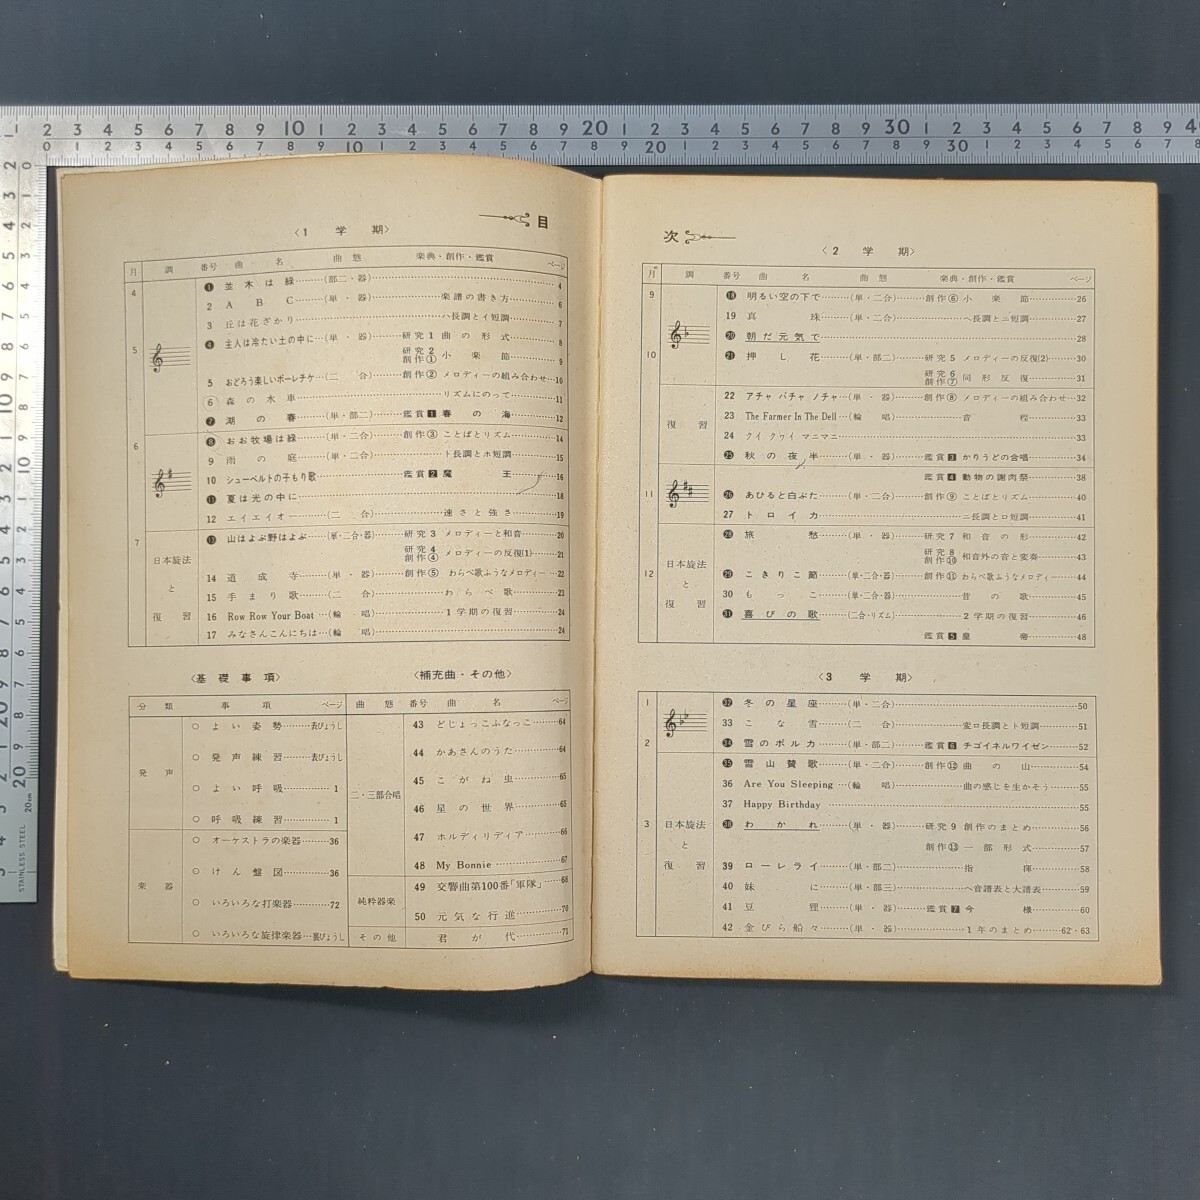 目
〈1　学　期〉
月 調 番号 曲　名 曲　態 楽典・創作・鑑賞 ページ
4 ❶ 並木は緑……(部二・器)……4
2 A B C……(単・器)……楽譜の書き方……6
3 丘は花ざかり……ハ長調とイ短調……7
5 ❹ 主人は冷たい土の中に…(単・器)……研究1 曲の形式……8
研究2 創作① 小楽節……9
5 おどろう楽しいポーレチケ…(二　合)……創作② メロディーの組み合わせ…10
⑥ 森の水車……リズムにのって……11
❼ 湖の春……(単・部二)……鑑賞1 春の海……12
6 ❽ おお牧場は緑……(単・二合)……創作③ ことばとリズム……14
9 雨の庭……(単・二合)……ト長調とホ短調……15
10 シューベルトの子もり歌……鑑賞2 魔王……16
⓫ 夏は光の中に……18
12 エイエイオー……(二　合)……速さと強さ……19
7 日本旋法と復習
⓭ 山はよぶ野はよぶ…(単・二合・器)……研究3 メロディーと和音……20
研究4 創作④ メロディーの反復(1)……21
14 道成寺……(単・器)……創作⑤ わらべ歌ふうなメロディー…22
15 手まり歌……(二　合)……わらべ歌……23
16 Row Row Your Boat…(輪　唱)……1学期の復習……24
17 みなさんこんにちは…(輪　唱)……24
〈基礎事項〉
分　類 事　項 ページ
発　声
○ よい姿勢……表びょうし
○ 発声練習……表びょうし
○ よい呼吸……1
○ 呼吸練習……1
楽　器
○ オーケストラの楽器……36
○ けん盤図……36
○ いろいろな打楽器……72
○ いろいろな旋律楽器…裏びょうし
〈補充曲・その他〉
曲　態 番号 曲　名 ページ
二・三部合唱
43 どじょっこふなっこ……64
44 かあさんのうた……64
45 こがね虫……65
46 星の世界……65
47 ホルディリディア……66
48 My Bonnie……67
純粋器楽
49 交響曲第100番「軍隊」……68
50 元気な行進……70
その他 君が代……71
次
〈2　学　期〉
月 調 番号 曲　名 曲　態 楽典・創作・鑑賞 ページ
9 ⓲ 明るい空の下で……(単・二合)……創作⑥ 小楽節……26
19 真珠……(単・二合)……ヘ長調とニ短調……27
⓴ 朝だ元気で……28
10 ㉑ 押し花……(単・部二)……研究5 メロディーの反復(2)……30
研究6 創作⑦ 同形反復……31
復　習
22 アチャ パチャ ノチャ…(単・器)……創作⑧ メロディーの組み合わせ…32
23 The Farmer In The Dell…(輪　唱)……音程……33
24 クイ クヮイ マニマニ……33
㉕ 秋の夜半……(単・器)……鑑賞3 かりうどの合唱……34
鑑賞4 動物の謝肉祭……38
11 ㉖ あひると白ぶた……(単・二合)……創作⑨ ことばとリズム……40
27 トロイカ……ニ長調とロ短調……41
日本旋法と復習
㉘ 旅愁……(単・器)……研究7 和音の形……42
研究8 創作⑩ 和音外の音と変奏……43
12 ㉙ こきりこ節……(単・二合・器)……創作⑪ わらべ歌ふうなメロディー……44
30 もっこ……(単・二合・器)……音の歌……45
㉛ 喜びの歌……(二合・リズム)……2学期の復習……46
鑑賞5 皇帝……48
〈3　学　期〉
1 ㉜ 冬の星座……(単・二合)……50
33 こな雪……(二　合)……変ロ長調とト短調……51
2 ㉞ 雪のポルカ……(単・部二)……鑑賞6 チゴイネルワイゼン……52
㉟ 雪山賛歌……(単・二合)……創作⑫ 曲の山……54
36 Are You Sleeping…(輪　唱)……曲の感じを生かそう……55
37 Happy Birthday……55
3 日本旋法と復習
㊳ わかれ……(単・器)……研究9 創作のまとめ……56
創作⑬ 一部形式……57
39 ローレライ……(単・部二)……指揮……58
40 妹に……(単・部三)……ヘ音譜表と大譜表……59
41 豆狸……(単・器)……鑑賞7 今様……60
42 金びら船々……(単・器)……1年のまとめ……62・63
STAINLESS STEEL
20cm